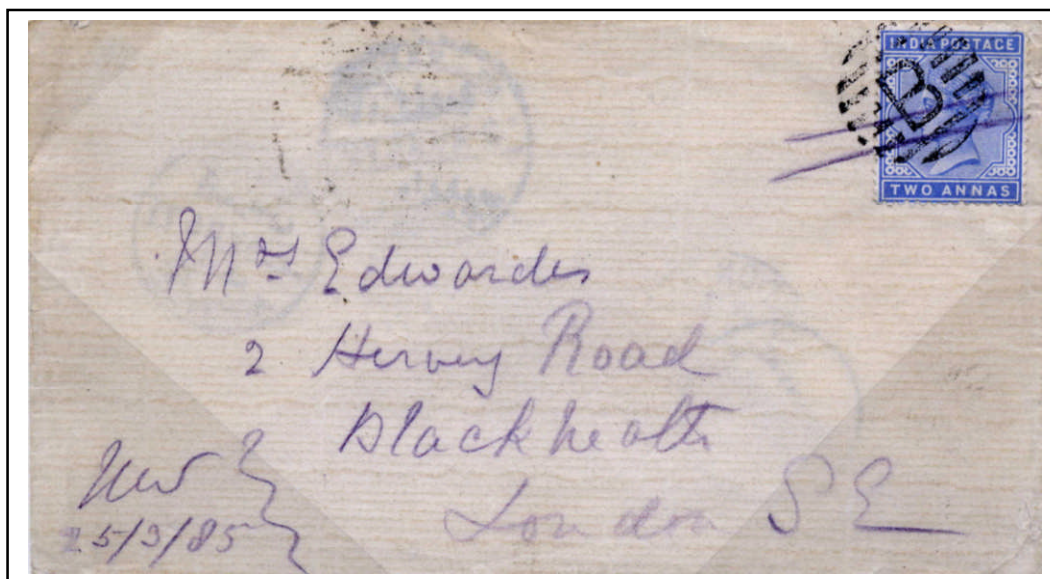 INDIA POSTAGE
B
TWO ANNAS
Mrs Edwardes
2 Hervey Road
Blackheath
London S E
25/3/85